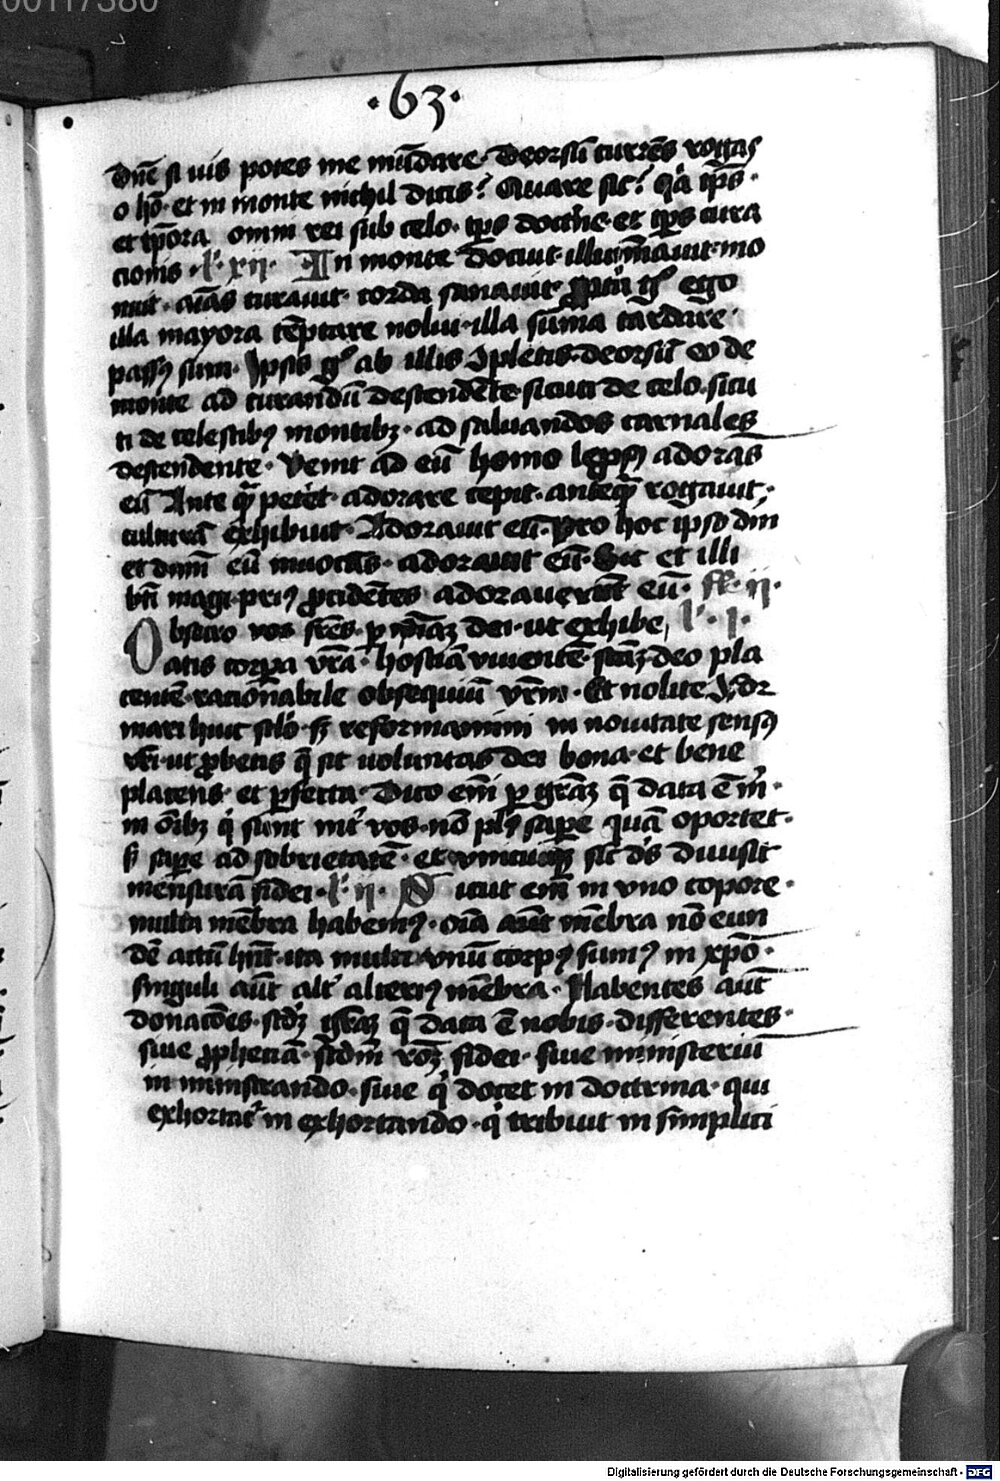 00117380
·63·
Dn̄e si uis potes me mūdare· Deorsū currēs rogas
o hō· et in monte nichil dicis? Quare sic? qͥa tp̄s·
et tp̄ora omni rei sub celo· tp̄s doct'ne· et tp̄s cura
cionis· lͦ· xii· In monte docuit· illumīauit· mo
nuit· aīas curauit· corda sanauit· ego
illa mayora tēptare nolui· illa sūma tardare·
passꝰ sum· Ipsis gͦ ab illis īpletis· deorsū de
monte ad curandū descendēte· sicuti de celo· sicu
ti de celestibꝰ montibꝫ· ad saluandos carnales
descendente· Venit ad eū homo lep̄sꝰ adorās
eū Ante qͣ̄ petēt· adorare cepit· anteqͣ̄ rogauit·
culturā exhibuit· Adorauit eū· pro hoc ipso dīn
et dnm̄ eū inuocās· adorauit eū· Sic et illi
magi· priꝰ ꝓcidētes adorauerūt eū· ff· ii·
Obsecro vos frēs· ꝑ mīaꝫ dei· ut exhibe, lͦ· i·
atis corpa vrā· hostiā viuentē· scāꝫ deo pla
centē· racionabile obsequiū vrm̄· Et nolite ꝯfor
mari huic sclo· sꝫ reformamini in nouitate sensꝰ
vrī· ut ꝓbetis q̄ sit uoluntas dei bona· et bene
placens· et ꝑfecta· Dico eīm ꝑ grāꝫ q̄ data ē m̄·
in oībꝫ qͥ sunt int' vos· nō plꝰ sape quā oportet·
sꝫ sape ad sobrietatē· et vnicuiqꝫ sic̄ dˢ diuisit
mensurā fidei· lͦ· ii· Sicut eīm in vno copore·
multa mēbra habemꝰ· oīa aūt mēbra nō eun
dē actū hn̄t· ita multi vnū corpꝰ sumꝰ in xpō·
singuli aūt alt' alteriꝰ mēbra· Habentes aūt
donacōes· scd̄ꝫ grāꝫ q̄ data ē nobis· differentes·
siue ꝓphetiā· scdm̄ rōꝫ fidei· siue ministeriū
in ministrando· siue qͥ docet in doctrina· qui
exhortatͬ in exhortando· qͥ tribuit in simplici
Digitalisierung gefördert durch die Deutsche Forschungsgemeinschaft - DFG